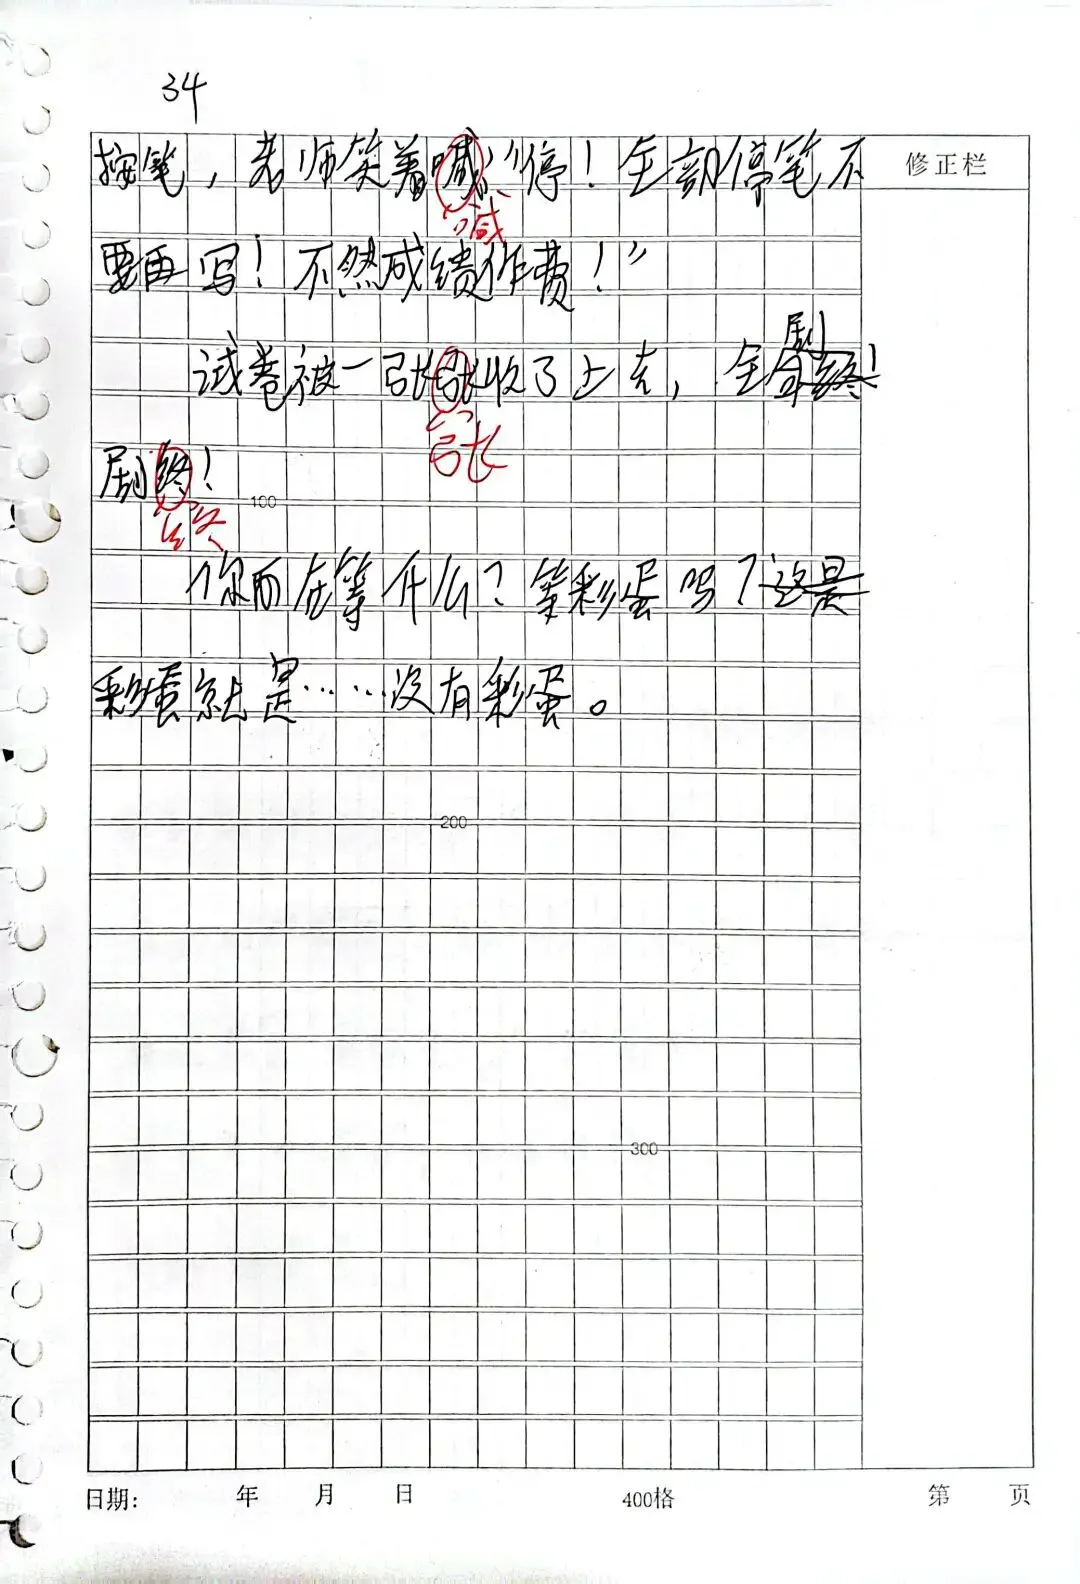 34
按笔，老师笑着喊：“停！全部停笔不
修正栏
喊
要再写！不然成绩作费！”
剧
试卷被一张张收了上去，全剧终！
张
剧终！
100
终
你而在等什么？等彩蛋吗？这是
彩蛋就是……没有彩蛋。
200
300
日期: 年 月 日 400格 第 页